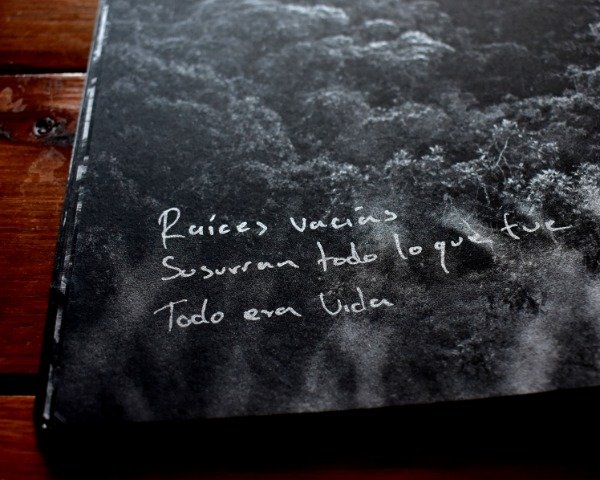 Raíces vacías
Susurran todo lo que fue
Todo era Vida